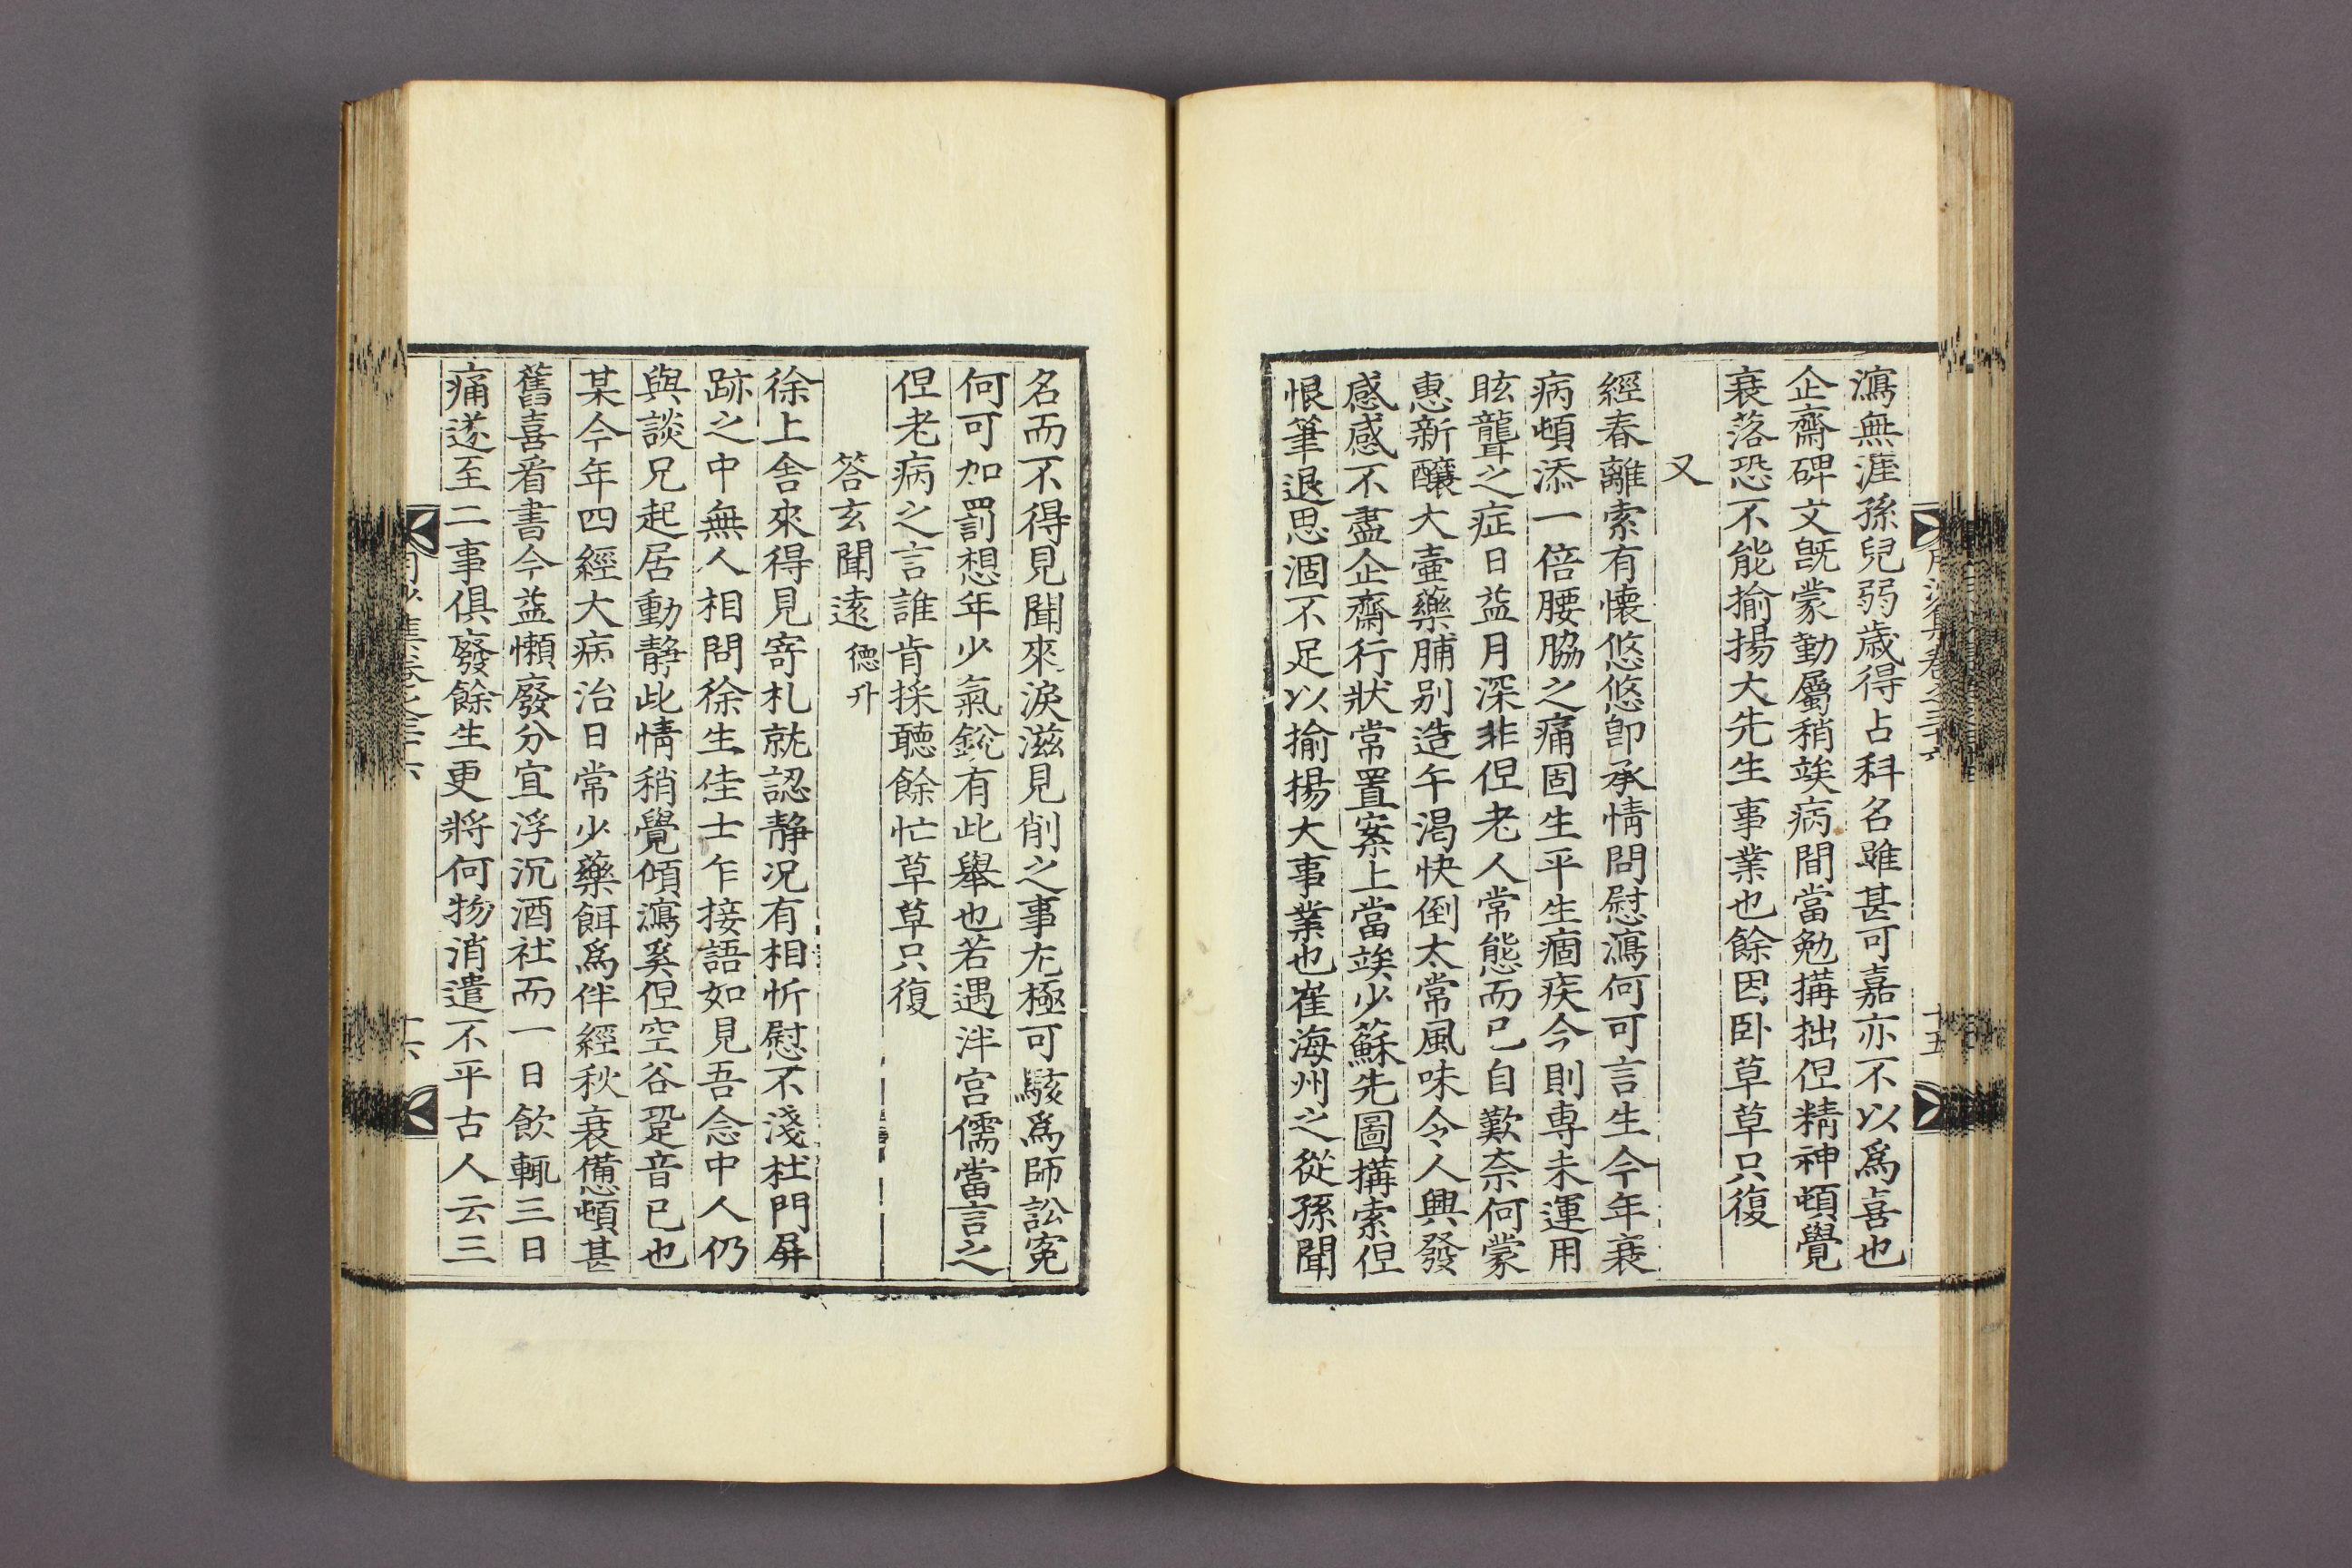 瀉無涯孫兒弱歲得占科名雖甚可嘉亦不以爲喜也
企齋碑文旣蒙勤屬稍竢病間當勉搆拙但精神頓覺
衰落恐不能揄揚大先生事業也餘因卧草草只復
又
經春離索有懷悠悠卽承情問慰瀉何可言生今年衰
病頓添一倍腰脇之痛固生平生痼疾今則専未運用
眩聾之症日益月深非但老人常態而已自歎柰何蒙
惠新釀大壷藥脯别造午渴快倒太常風味令人興發
感感不盡企齋行狀常置案上當竢少蘇先圖搆索但
恨筆退思涸不足以揄揚大事業也崔海州之從孫聞
名而不得見聞來淚滋見削之事尤極可駭爲師訟寃
何可加罰想年少氣銳有此擧也若遇泮宫儒當言之
但老病之言誰肯採聽餘忙草草只復
答玄聞遠 德升
徐上舍來得見寄札就認静况有相忻慰不淺杜門屏
跡之中無人相問徐生佳士乍接語如見吾念中人仍
與談兄起居動静此情稍覺傾瀉奚但空谷跫音已也
某今年四經大病治日常少藥餌爲伴經秋衰憊頓甚
舊喜看書今益懶廢分宜浮沉酒社而一日飮輒三日
痛遂至二事俱廢餘生更將何物消遣不平古人云三
月沙集卷之三十六
十五
十六